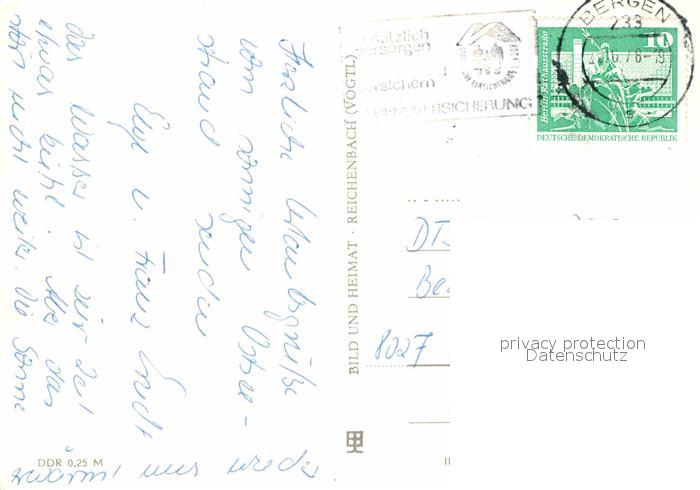 Herzliche Urlaubsgrüße
vom sonnigen Ostsee-
strand senden
Elye u. Franz Endt
Das Wasser ist zur Zeit
etwas kühl. Aber das
stört nicht weiter. Die Sonne
wieder
uns
BILD UND HEIMAT · REICHENBACH (VOGTL)
DDR 0,25 M
zusätzlich
versorgen
versichern
BERGEN
233
10
Berlin, Rathausstraße
DEUTSCHE DEMOKRATISCHE REPUBLIK
8027
privacy protection
Datenschutz